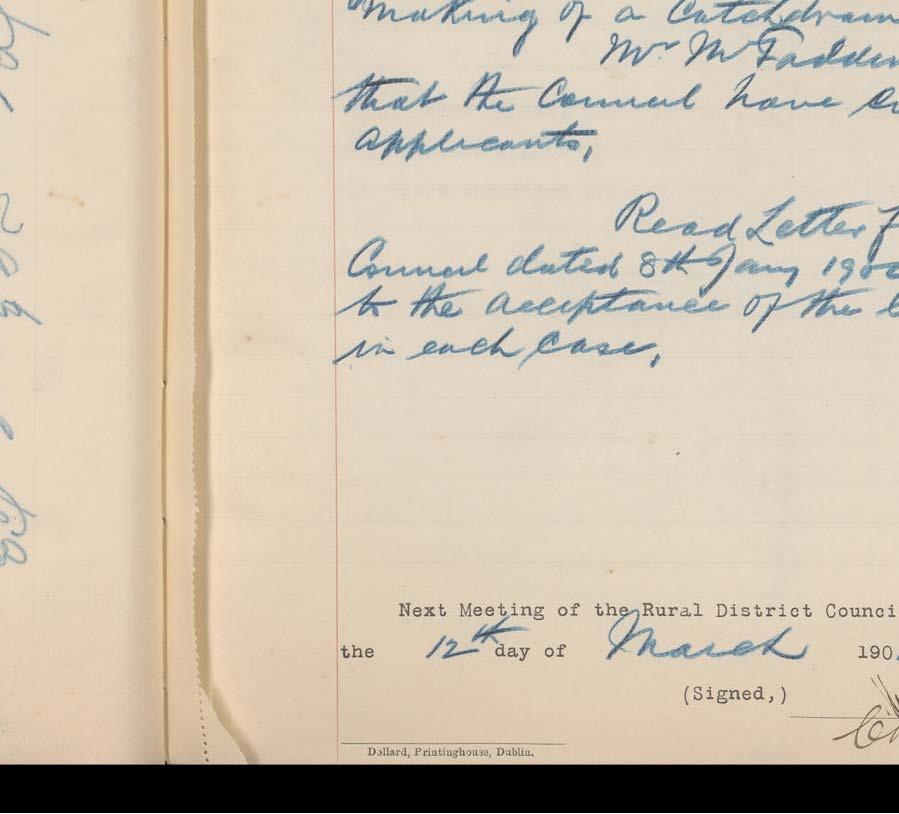 making of a Catchdrain
Mr McFadden
that the Council have
applicants,
Read Letter
Council dated 8th Jany 190
to the acceptance of the
in each case,
Next Meeting of the Rural District Counci
the 12th day of March 190
(Signed,)
Dollard, Printinghouse, Dublin.